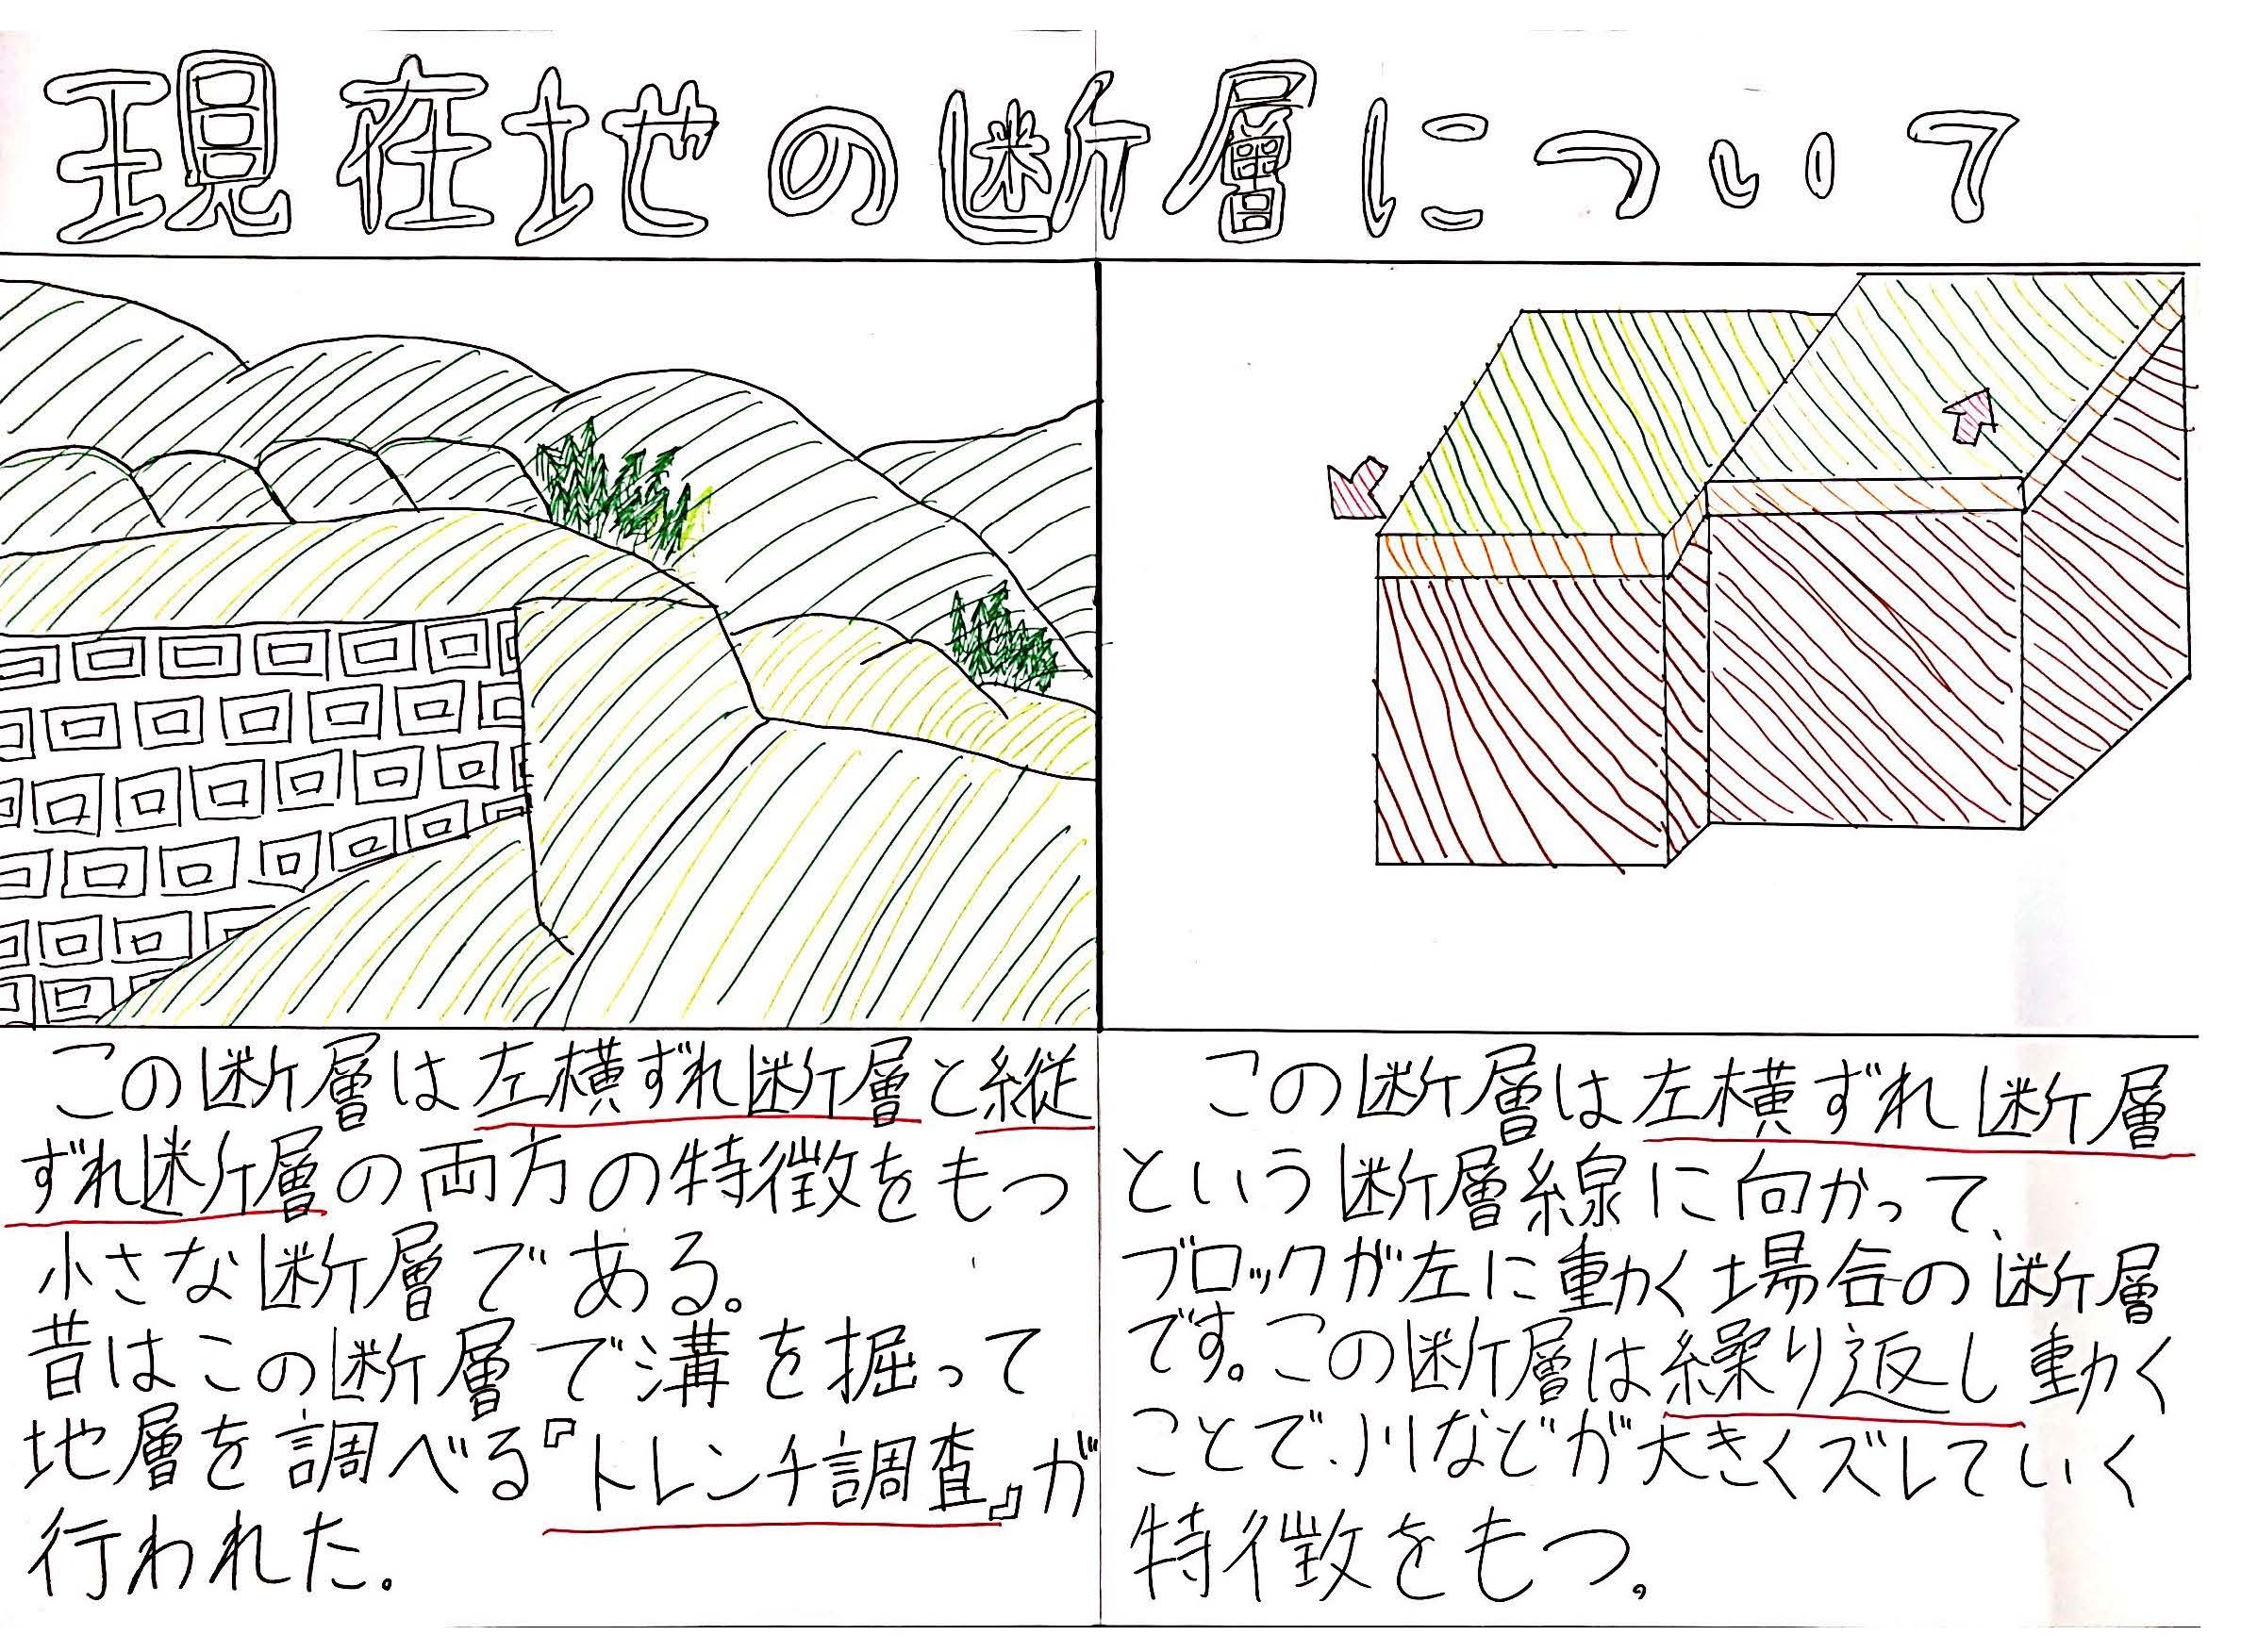 現在地の断層について
この断層は左横ずれ断層と縦
ずれ断層の両方の特徴をもつ
小さな断層である。
昔はこの断層で溝を掘って
地層を調べる『トレンチ調査』が
行われた。
この断層は左横ずれ断層
という断層線に向かって、
ブロックが左に動く場合の断層
です。この断層は繰り返し動く
ことで、川などが大きくズレていく
特徴をもつ。